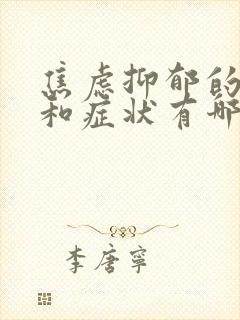 焦虑抑郁的
和症状有哪
李唐宁